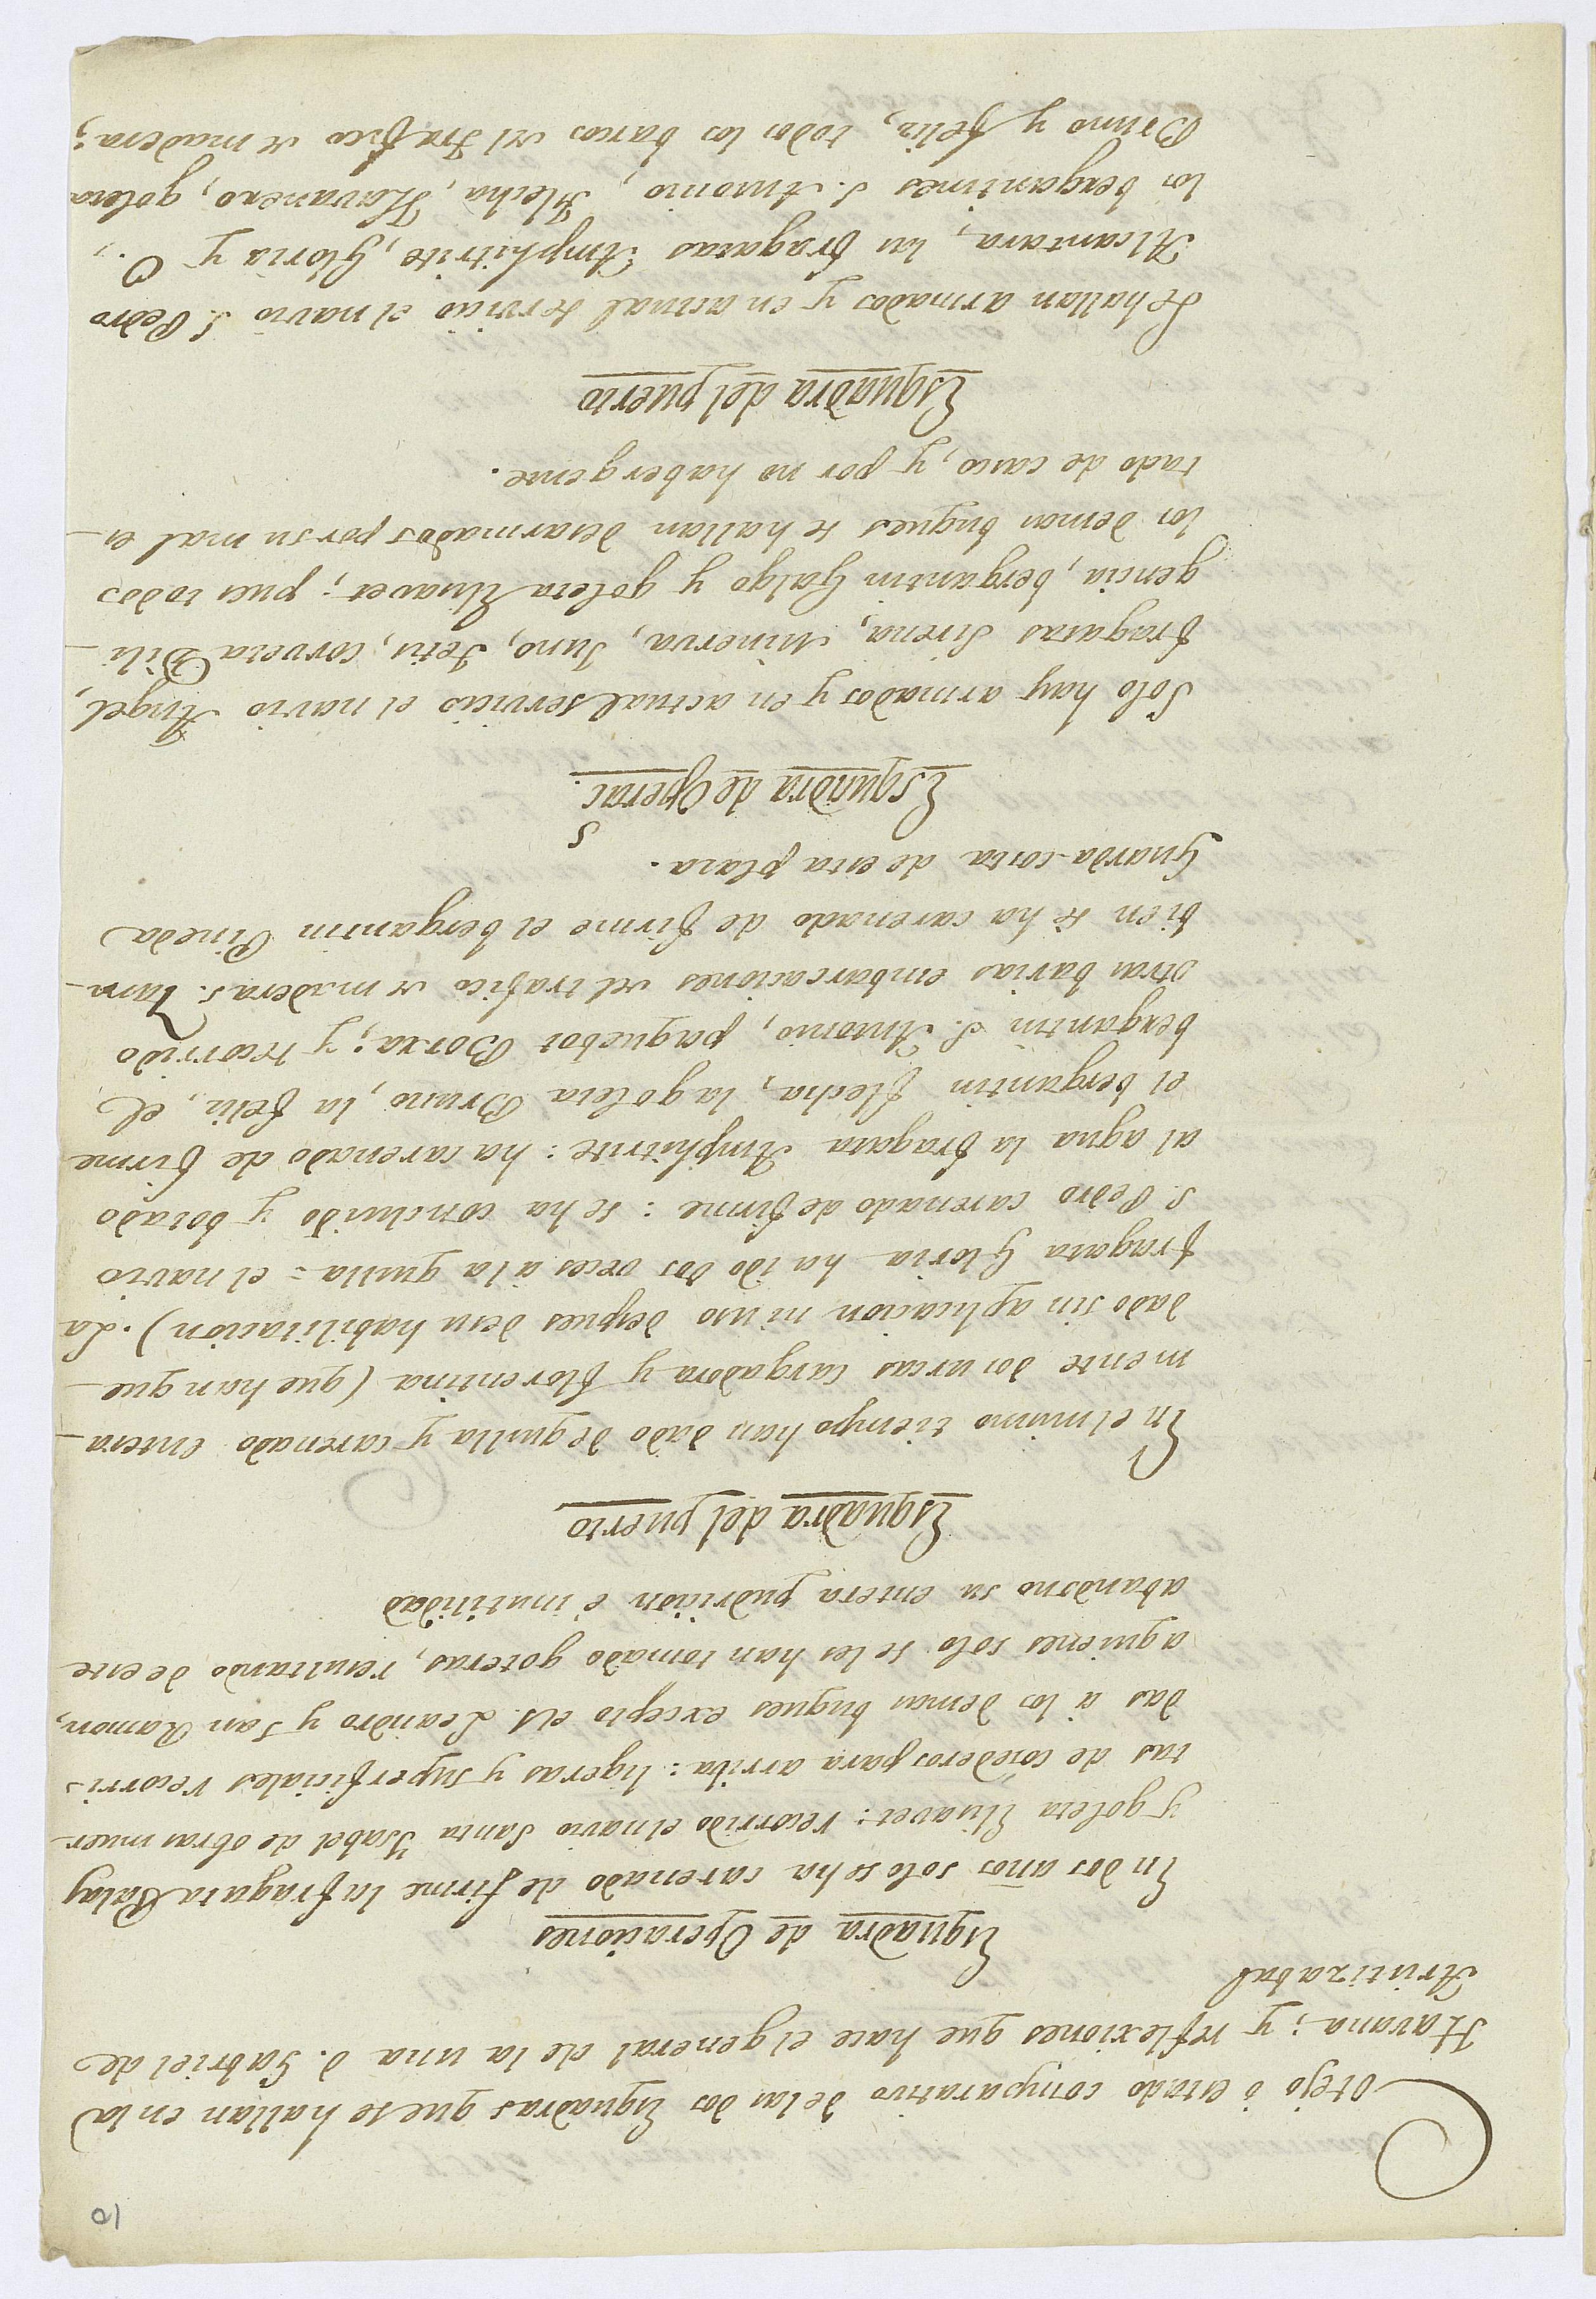 10
Cotejo ò estado comparativo de las dos Esquadras que se hallan en la
Havana; y reflexiones que hace el general de la una d. Gabriel de
Aristizabal
Esquadra de Operaciones
En dos años solo se ha carenado de firme la fragata Palas
y goleta Elisavet: recorrido el navio Santa Ysabel de obras muer-
tas de cosederos para arriba: ligeras y superficiales recorri-
das à los demas buques excepto el S. Leandro y San Ramon,
a quienes solo se les han tomado goteras, resultando de este
abandono su entera pudricion è inutilidad
Esquadra del puerto
En el mismo tiempo han dado de quilla y carenado entera-
mente dos urcas cargadora y florentina (que han que-
dado sin aplicacion ni uso despues de su habilitacion). La
fragata Gloria ha ido dos veces à la quilla = el navio
S. Pedro carenado de firme: se ha concluido y botado
al agua la fragata Amphitrite: ha carenado de firme
el bergantin flecha, la goleta Bruno, la feliz, el
bergantin S. Antonio, paquebot Borxa; y recorrido
otras barias embarcaciones del trafico de maderas. Tam-
bien se ha carenado de firme el bergantin Pineda
Guarda-costa de esta plaza.
Esquadra de Operac.s
Solo hay armados y en actual servicio el navio Angel,
fragatas Sirena, Minerva, Juno, Tetis, corveta Dili-
gencia, bergantin Galgo y goleta Elisavet; pues todos
los demas buques se hallan desarmados por su mal es-
tado de casco, y por no haber gente.
Esquadra del puerto
Se hallan armados y en actual servicio el navio S. Pedro
Alcantara, las fragatas Amphitrite, Gloria y O.,
los bergantines S. Antonio, Flecha, Havanero, goleta
Bruno y feliz, todos los barcos del trafico de madera;